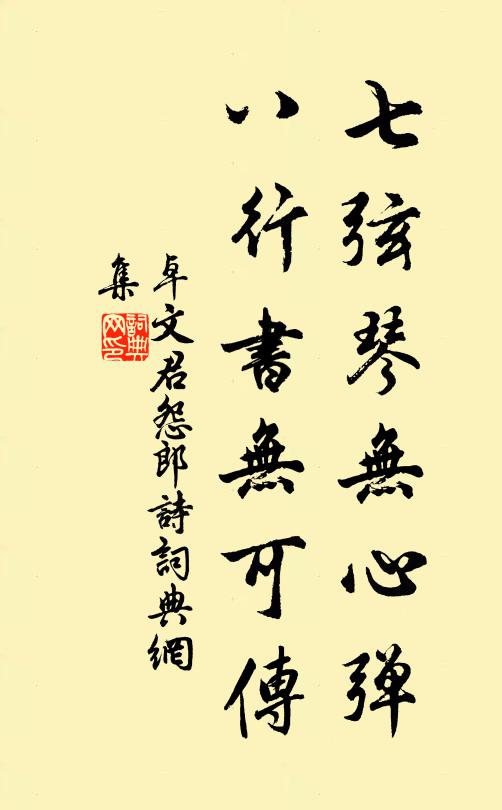 七弦琴無心弹
八行書無可傳
卓文君怨郎詩詞典網
集
詞典
网印